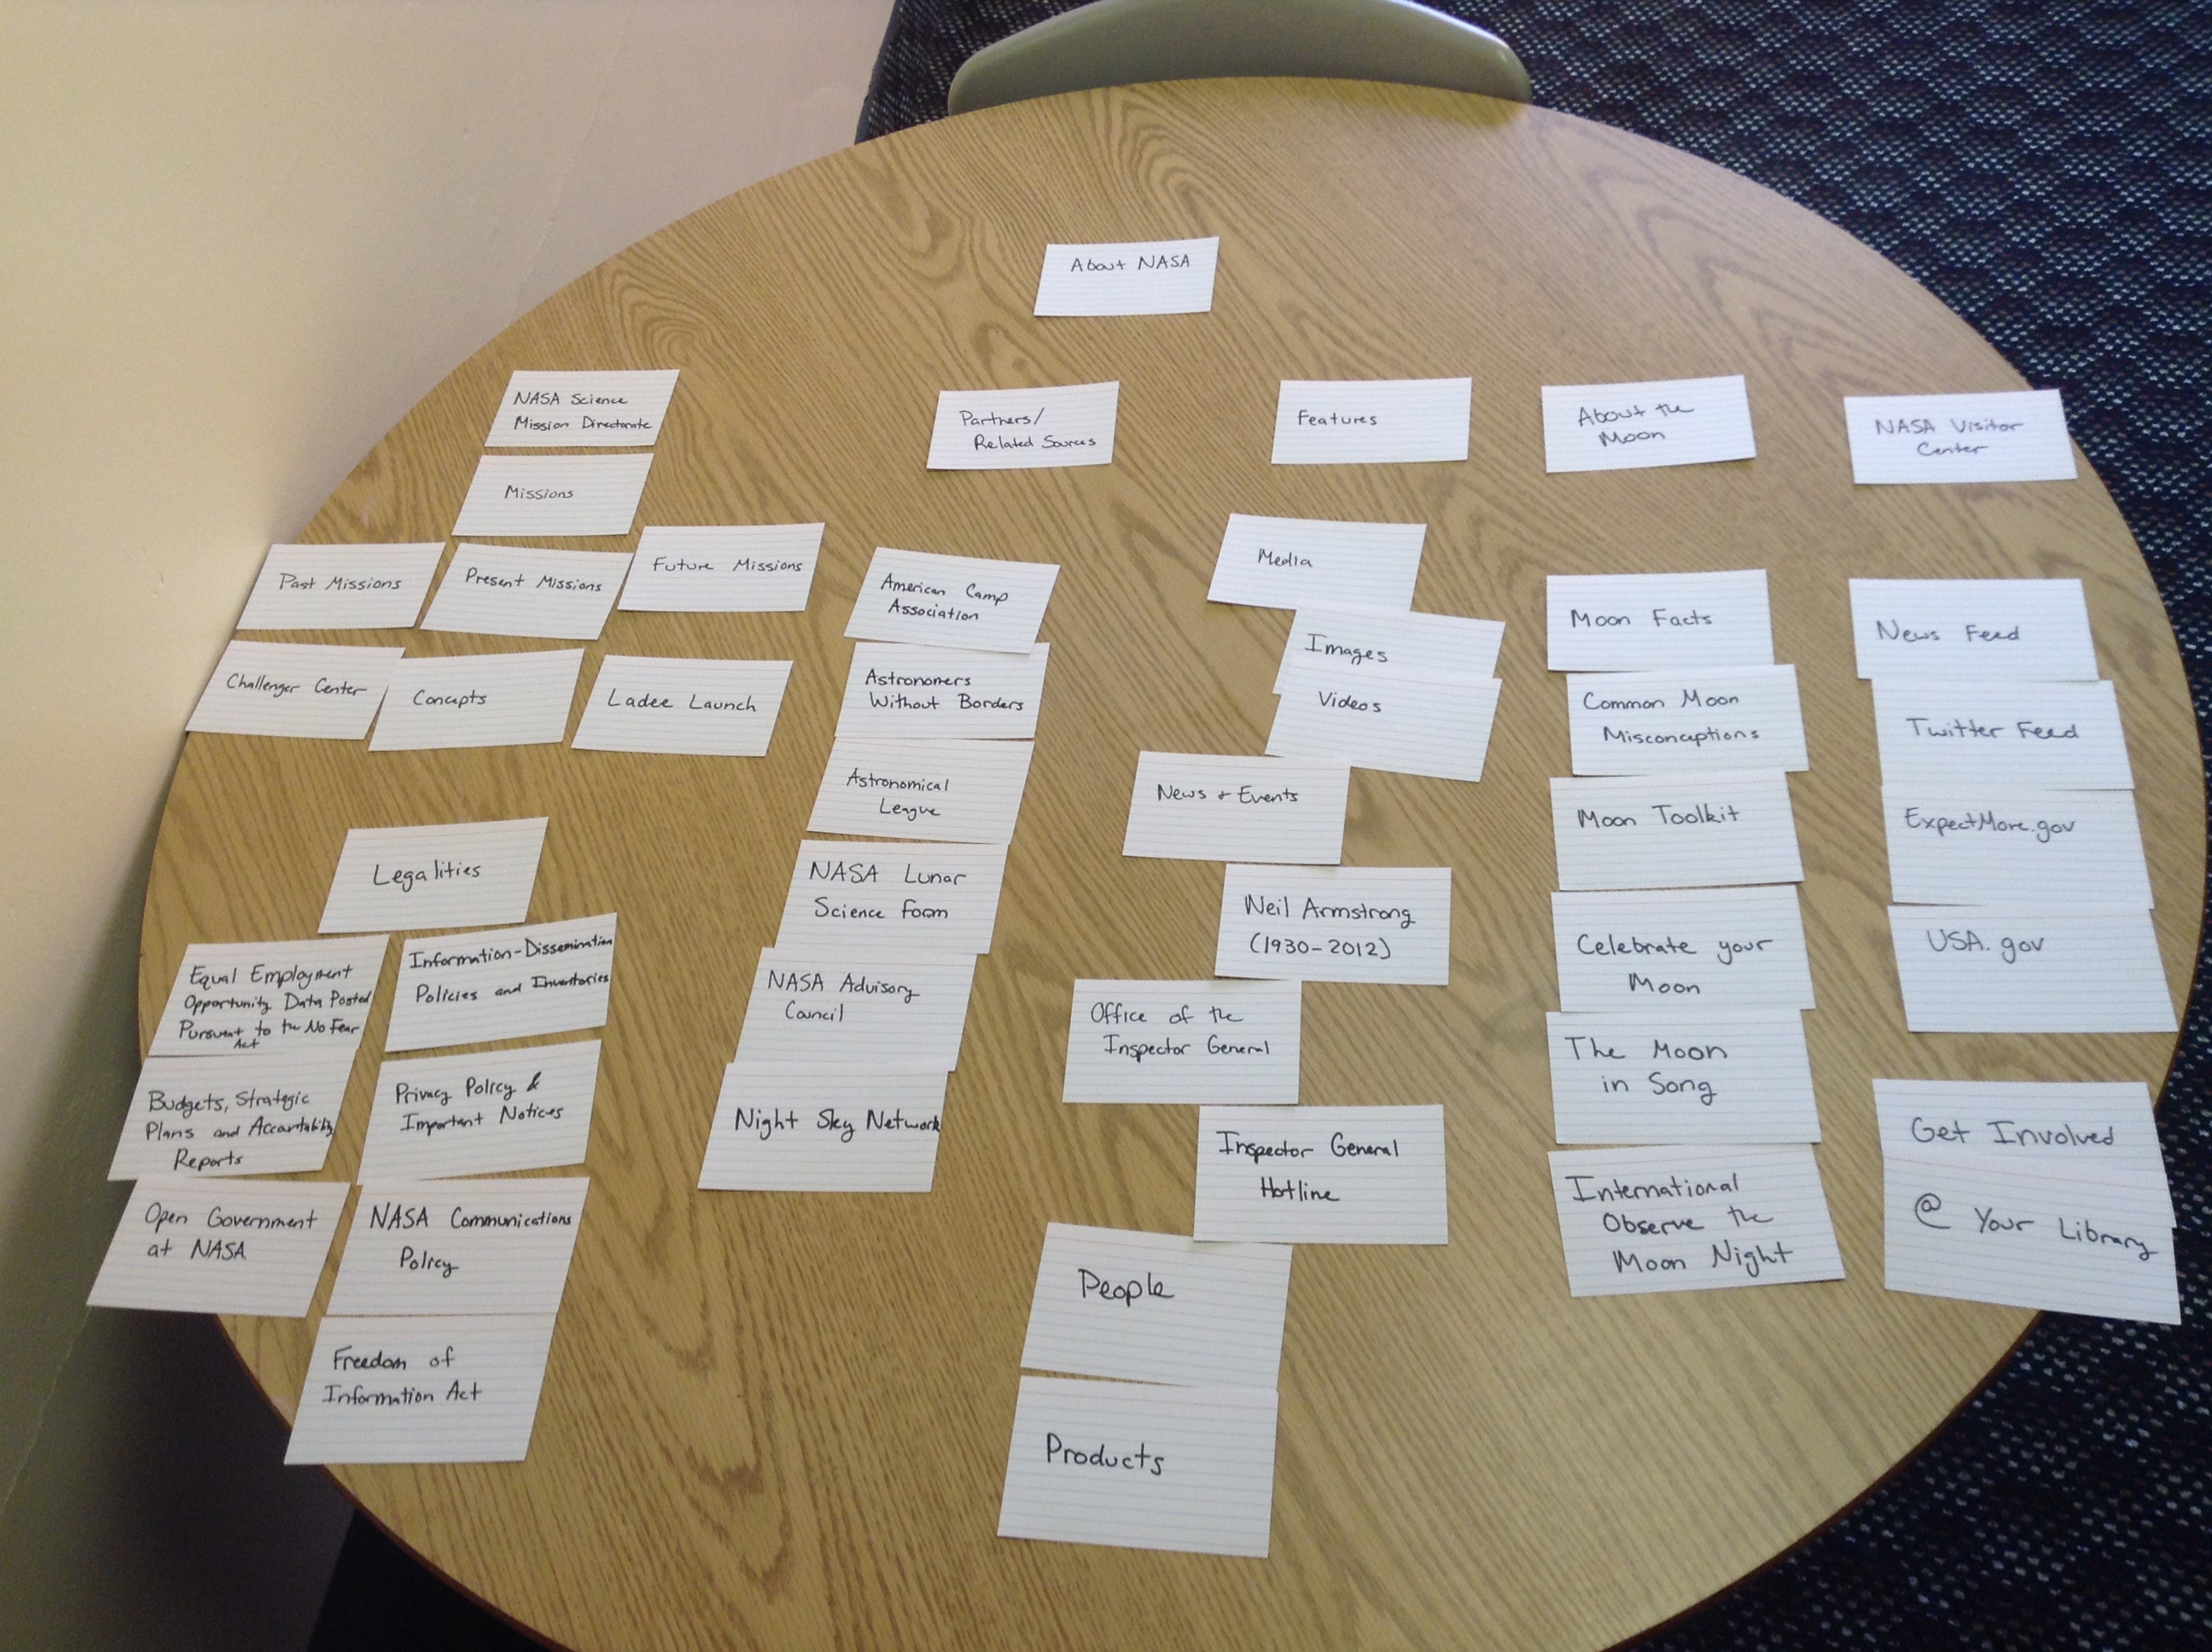 About NASA
NASA Science
Mission Directorate
Missions
Past Missions
Present Missions
Future Missions
Challenger Center
Concepts
Ladee Launch
Legalities
Equal Employment
Opportunity Data Posted
Pursuant to the No Fear
Act
Budgets, Strategic
Plans and Accountability
Reports
Open Government
at NASA
Information-Dissemination
Policies and Inventories
Privacy Policy &
Important Notices
NASA Communications
Policy
Freedom of
Information Act
Partners/
Related Sources
American Camp
Association
Astronomers
Without Borders
Astronomical
League
NASA Lunar
Science Forom
NASA Advisory
Council
Night Sky Network
Features
Media
Images
Videos
News & Events
Neil Armstrong
(1930-2012)
Office of the
Inspector General
Inspector General
Hotline
People
Products
About the
Moon
Moon Facts
Common Moon
Misconceptions
Moon Toolkit
Celebrate your
Moon
The Moon
in Song
International
Observe the
Moon Night
NASA Visitor
Center
News Feed
Twitter Feed
ExpectMore.gov
USA.gov
Get Involved
@ Your Library